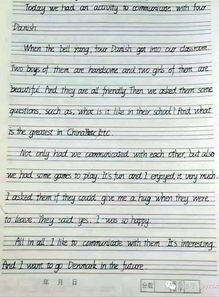 Today we had an activity to communicate with four
Danish.
When the bell rang, four Danish got into our classroom.
Two boys of them are handsome and two girls of them are
beautiful. And they are all friendly. Then we asked them some
questions, such as, what is it like in their school? And what
is the greatest in China? etc.
Not only had we communicated with each other, but also
we had some games to play. It's fun and I enjoyed it very much.
I asked them if they could give me a hug when they were
to leave. They said yes. I was so happy.
All in all, I like to communicate with them. It's interesting.
And I want to go Denmark in the future.
年 月 日